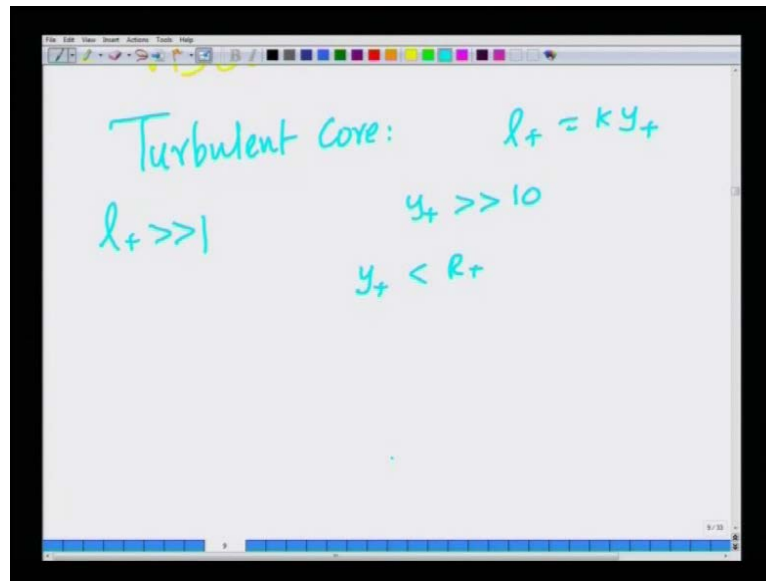 File Edit View Insert Actions Tools Help
Turbulent Core: l+ = K y+
l+ >> 1
y+ >> 10
y+ < R+
9/33
9